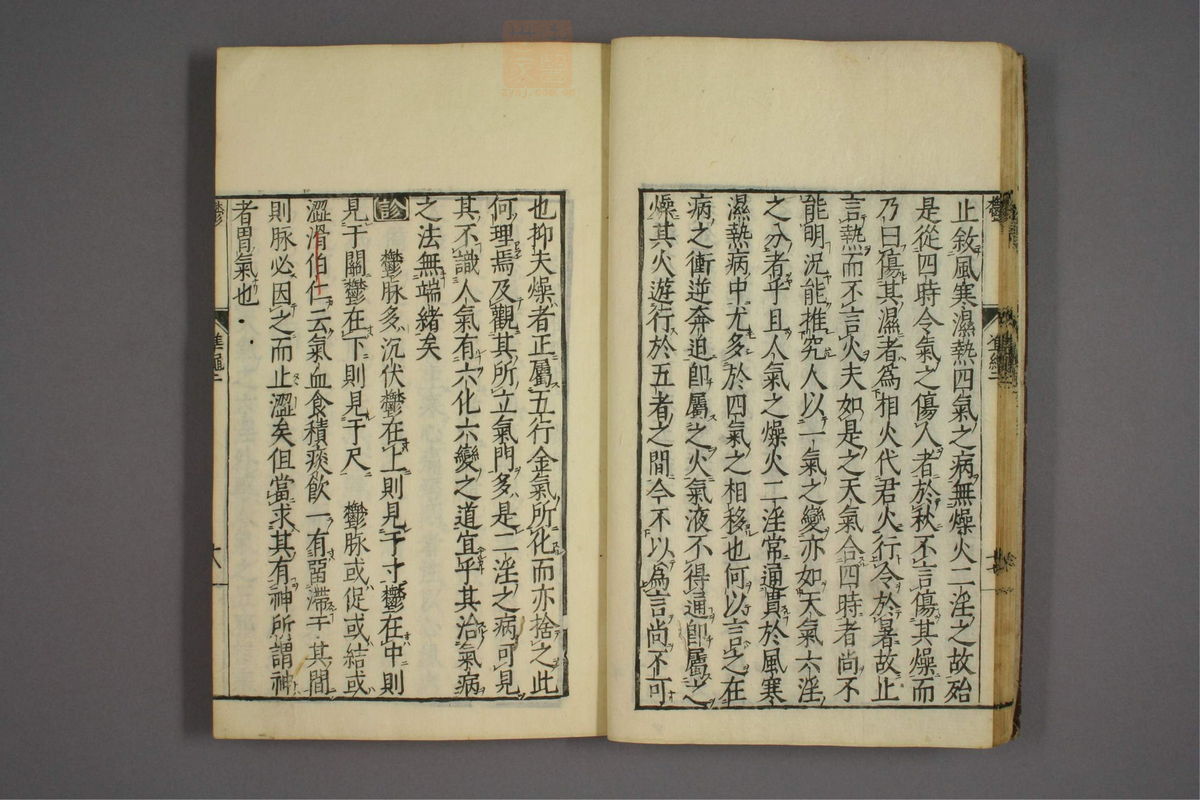 止敘風寒濕熱四氣之病無燥火二淫之故殆
是從四時令氣之傷人者於秋不言傷其燥而
乃曰傷其濕者為相火代君火行令於暑故止
言熱而不言火夫如是之天氣合四時者尚不
能明況能推究人以一氣之變亦如天氣六淫
之分者乎且人氣之燥火二淫常通貫於風寒
濕熱病中尤多於四氣之相移也何以言之在
病之衝逆奔迫卽屬之火氣液不得通卽屬之
燥其火遊行於五者之間今不以為言尚不可
也抑夫燥者正屬五行金氣所化而亦捨之此
何理焉及觀其所立氣門多是二淫之病可見
其不識人氣有六化六變之道宜乎其治氣病
之法無端緒矣
診 鬱脉多沉伏鬱在上則見于寸鬱在中則
見于關鬱在下則見于尺 鬱脉或促或結或
澀滑伯仁云氣血食積痰飲一有留滯于其間
則脉必因之而止澀矣但當求其有神所謂神
者胃氣也
鬱
準繩二